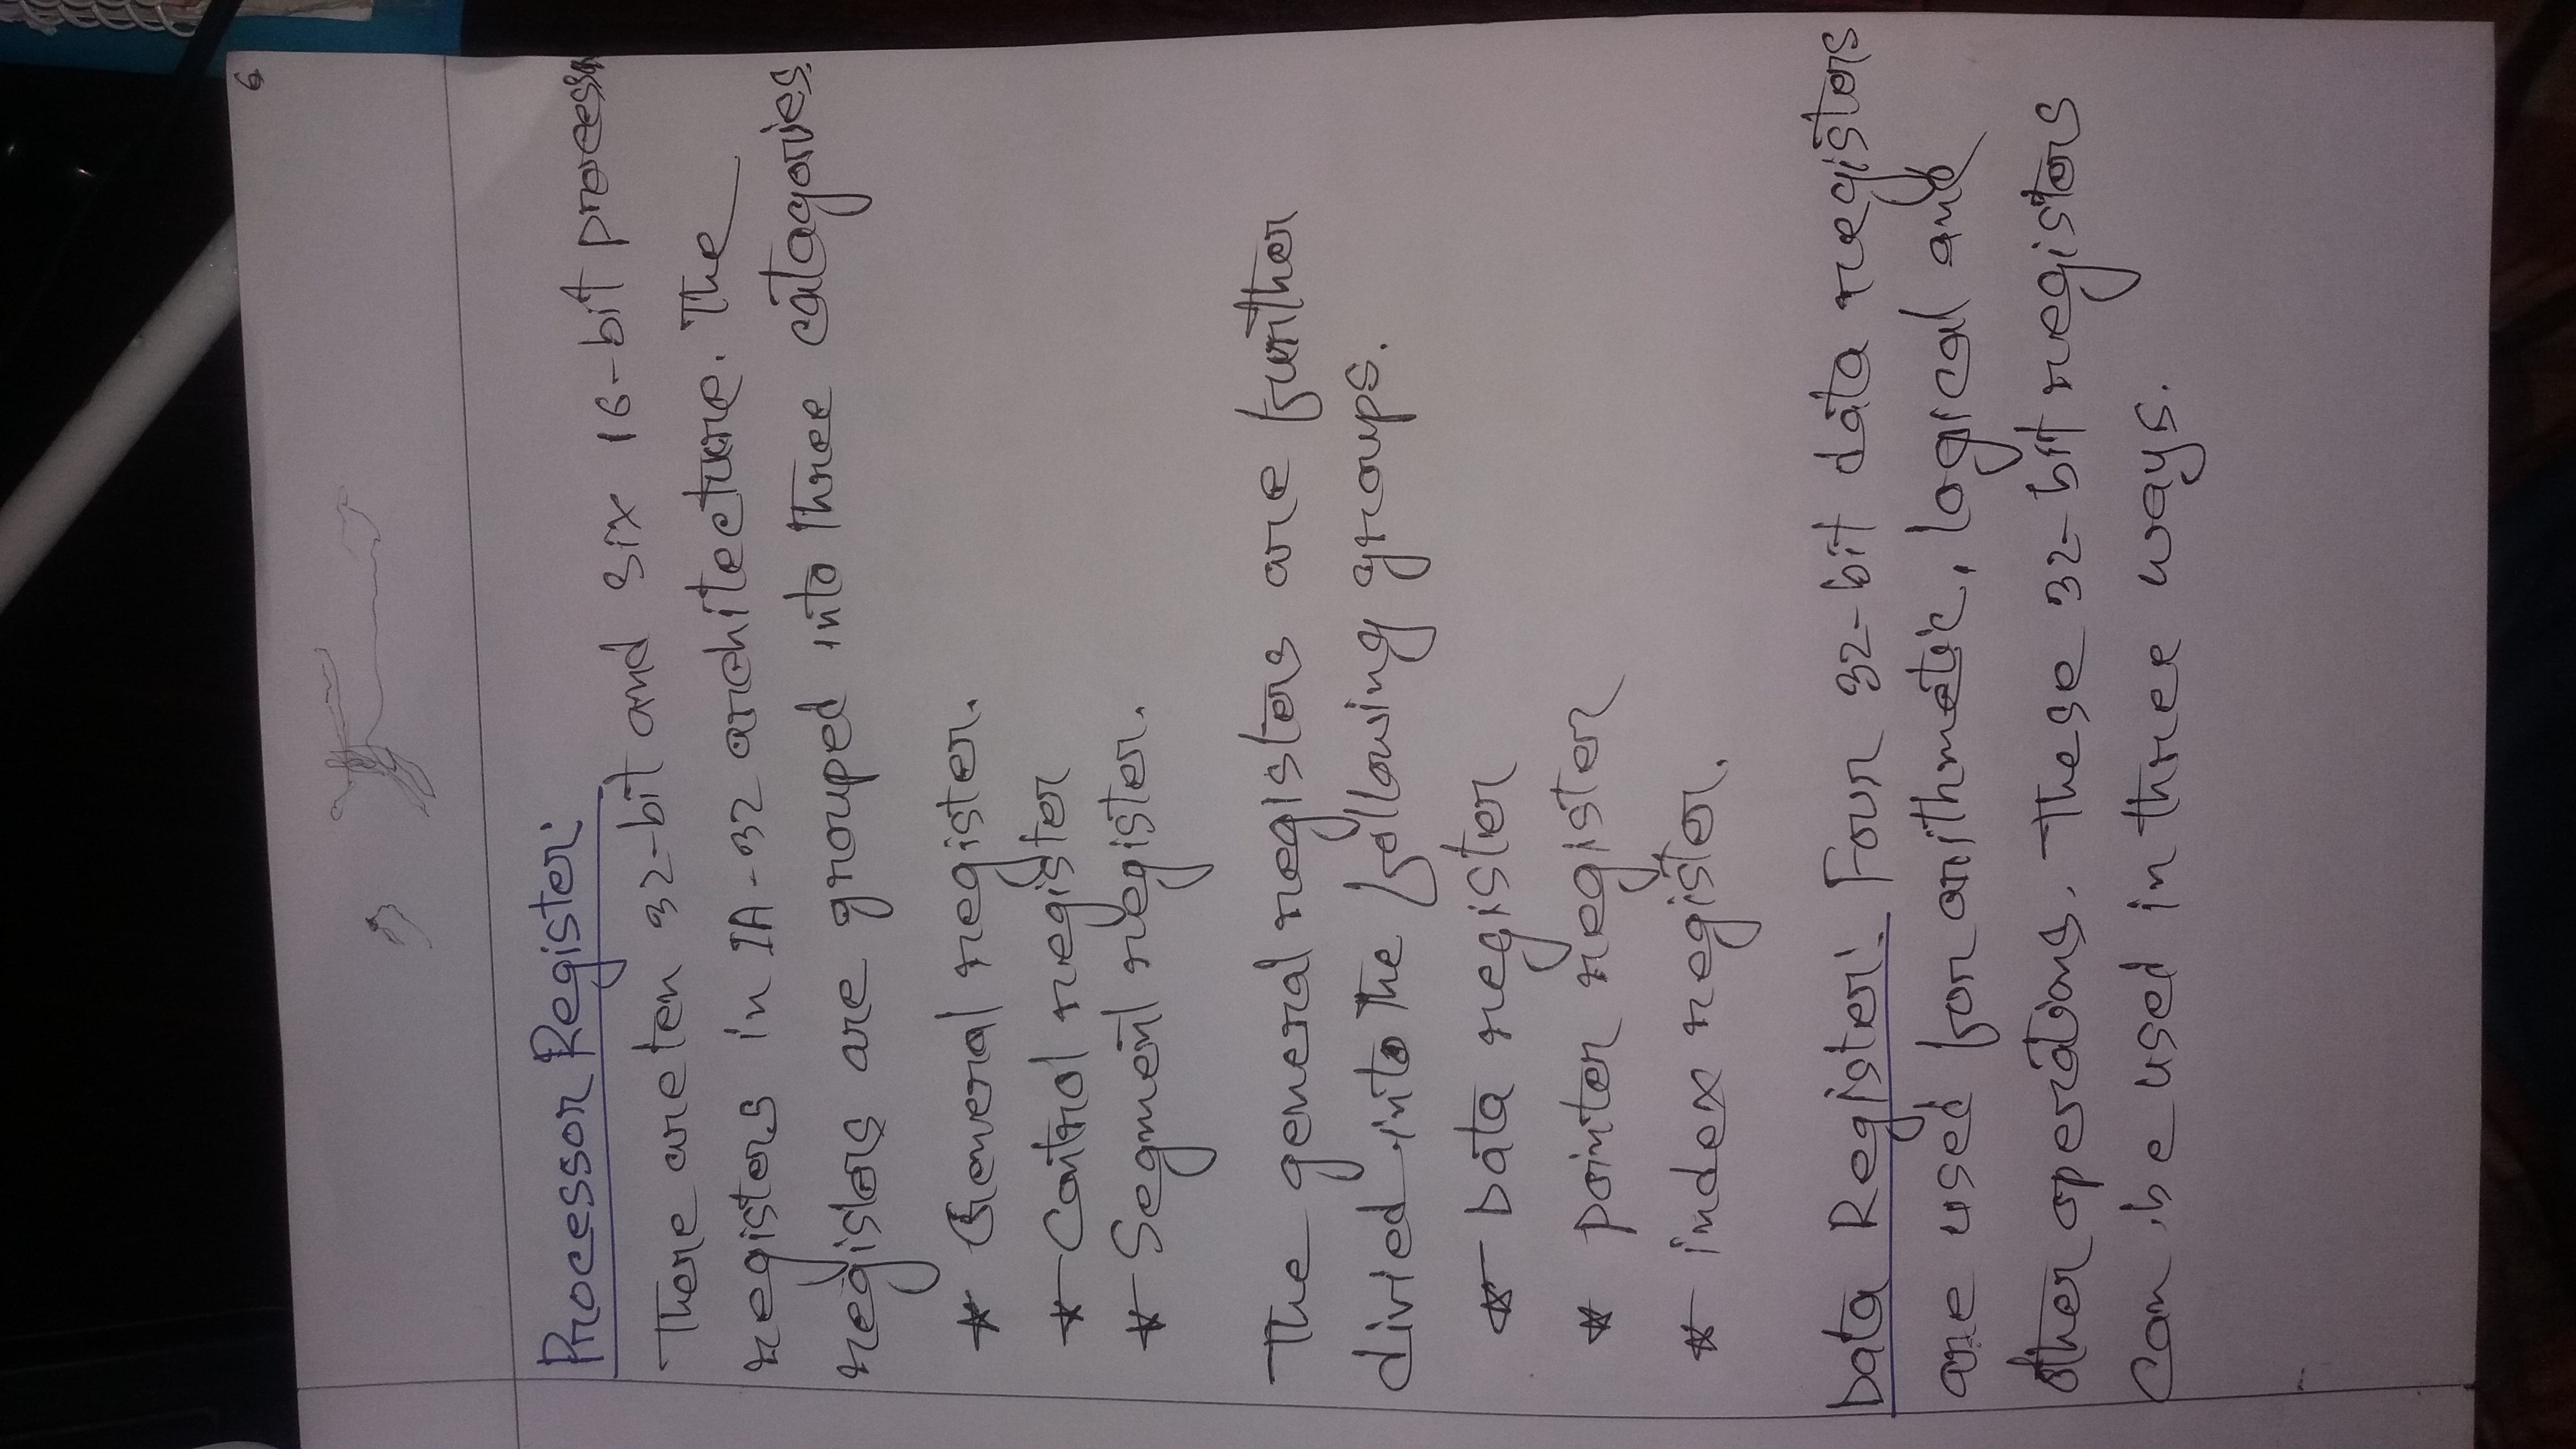 6
Processor Register:
There are ten 32-bit and six 16-bit processor
registers in IA-32 architecture. The
registers are grouped into three catagories.
* General register.
* Control register
* Segment register.
The general registers are further
divied into the following groups.
* Data register
* pointer register
* index register.
Data Register: Four 32-bit data registers
are used for arithmetic, logical and
other operations. These 32-bit registers
can be used in three ways.